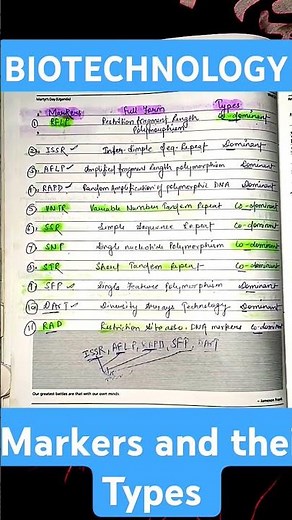 BIOTECHNOLOGY
Martyr's Day (Uganda)
Markers Full Form Types
① RFLP Restrition fragment length Polymorphism Co-dominant
② ISSR Inter-Simple seq. Repeat Dominant
③ AFLP Amplified fragment length polymorphism Dominant
④ RAPD Random Amplification of polymorphic DNA Dominant
⑤ VNTR Variable Number Tandem Repeat Co-dominant
⑥ SSR Simple Sequence Repeat Co-dominant
⑦ SNP Single nucleotide Polymorphism Co-dominant
⑧ STR Short Tandem Repeat Co-dominant
⑨ SFP Single Feature Polymorphism Dominant
⑩ DArT Diversity Arrays Technology Dominant
⑪ RAD Restriction site asso. DNA markers Co-dominant
ISSR, AFLP, RAPD, SFP, DArT
Our greatest battles are that with our own minds.
– Jameson Frank
Markers and the
Types